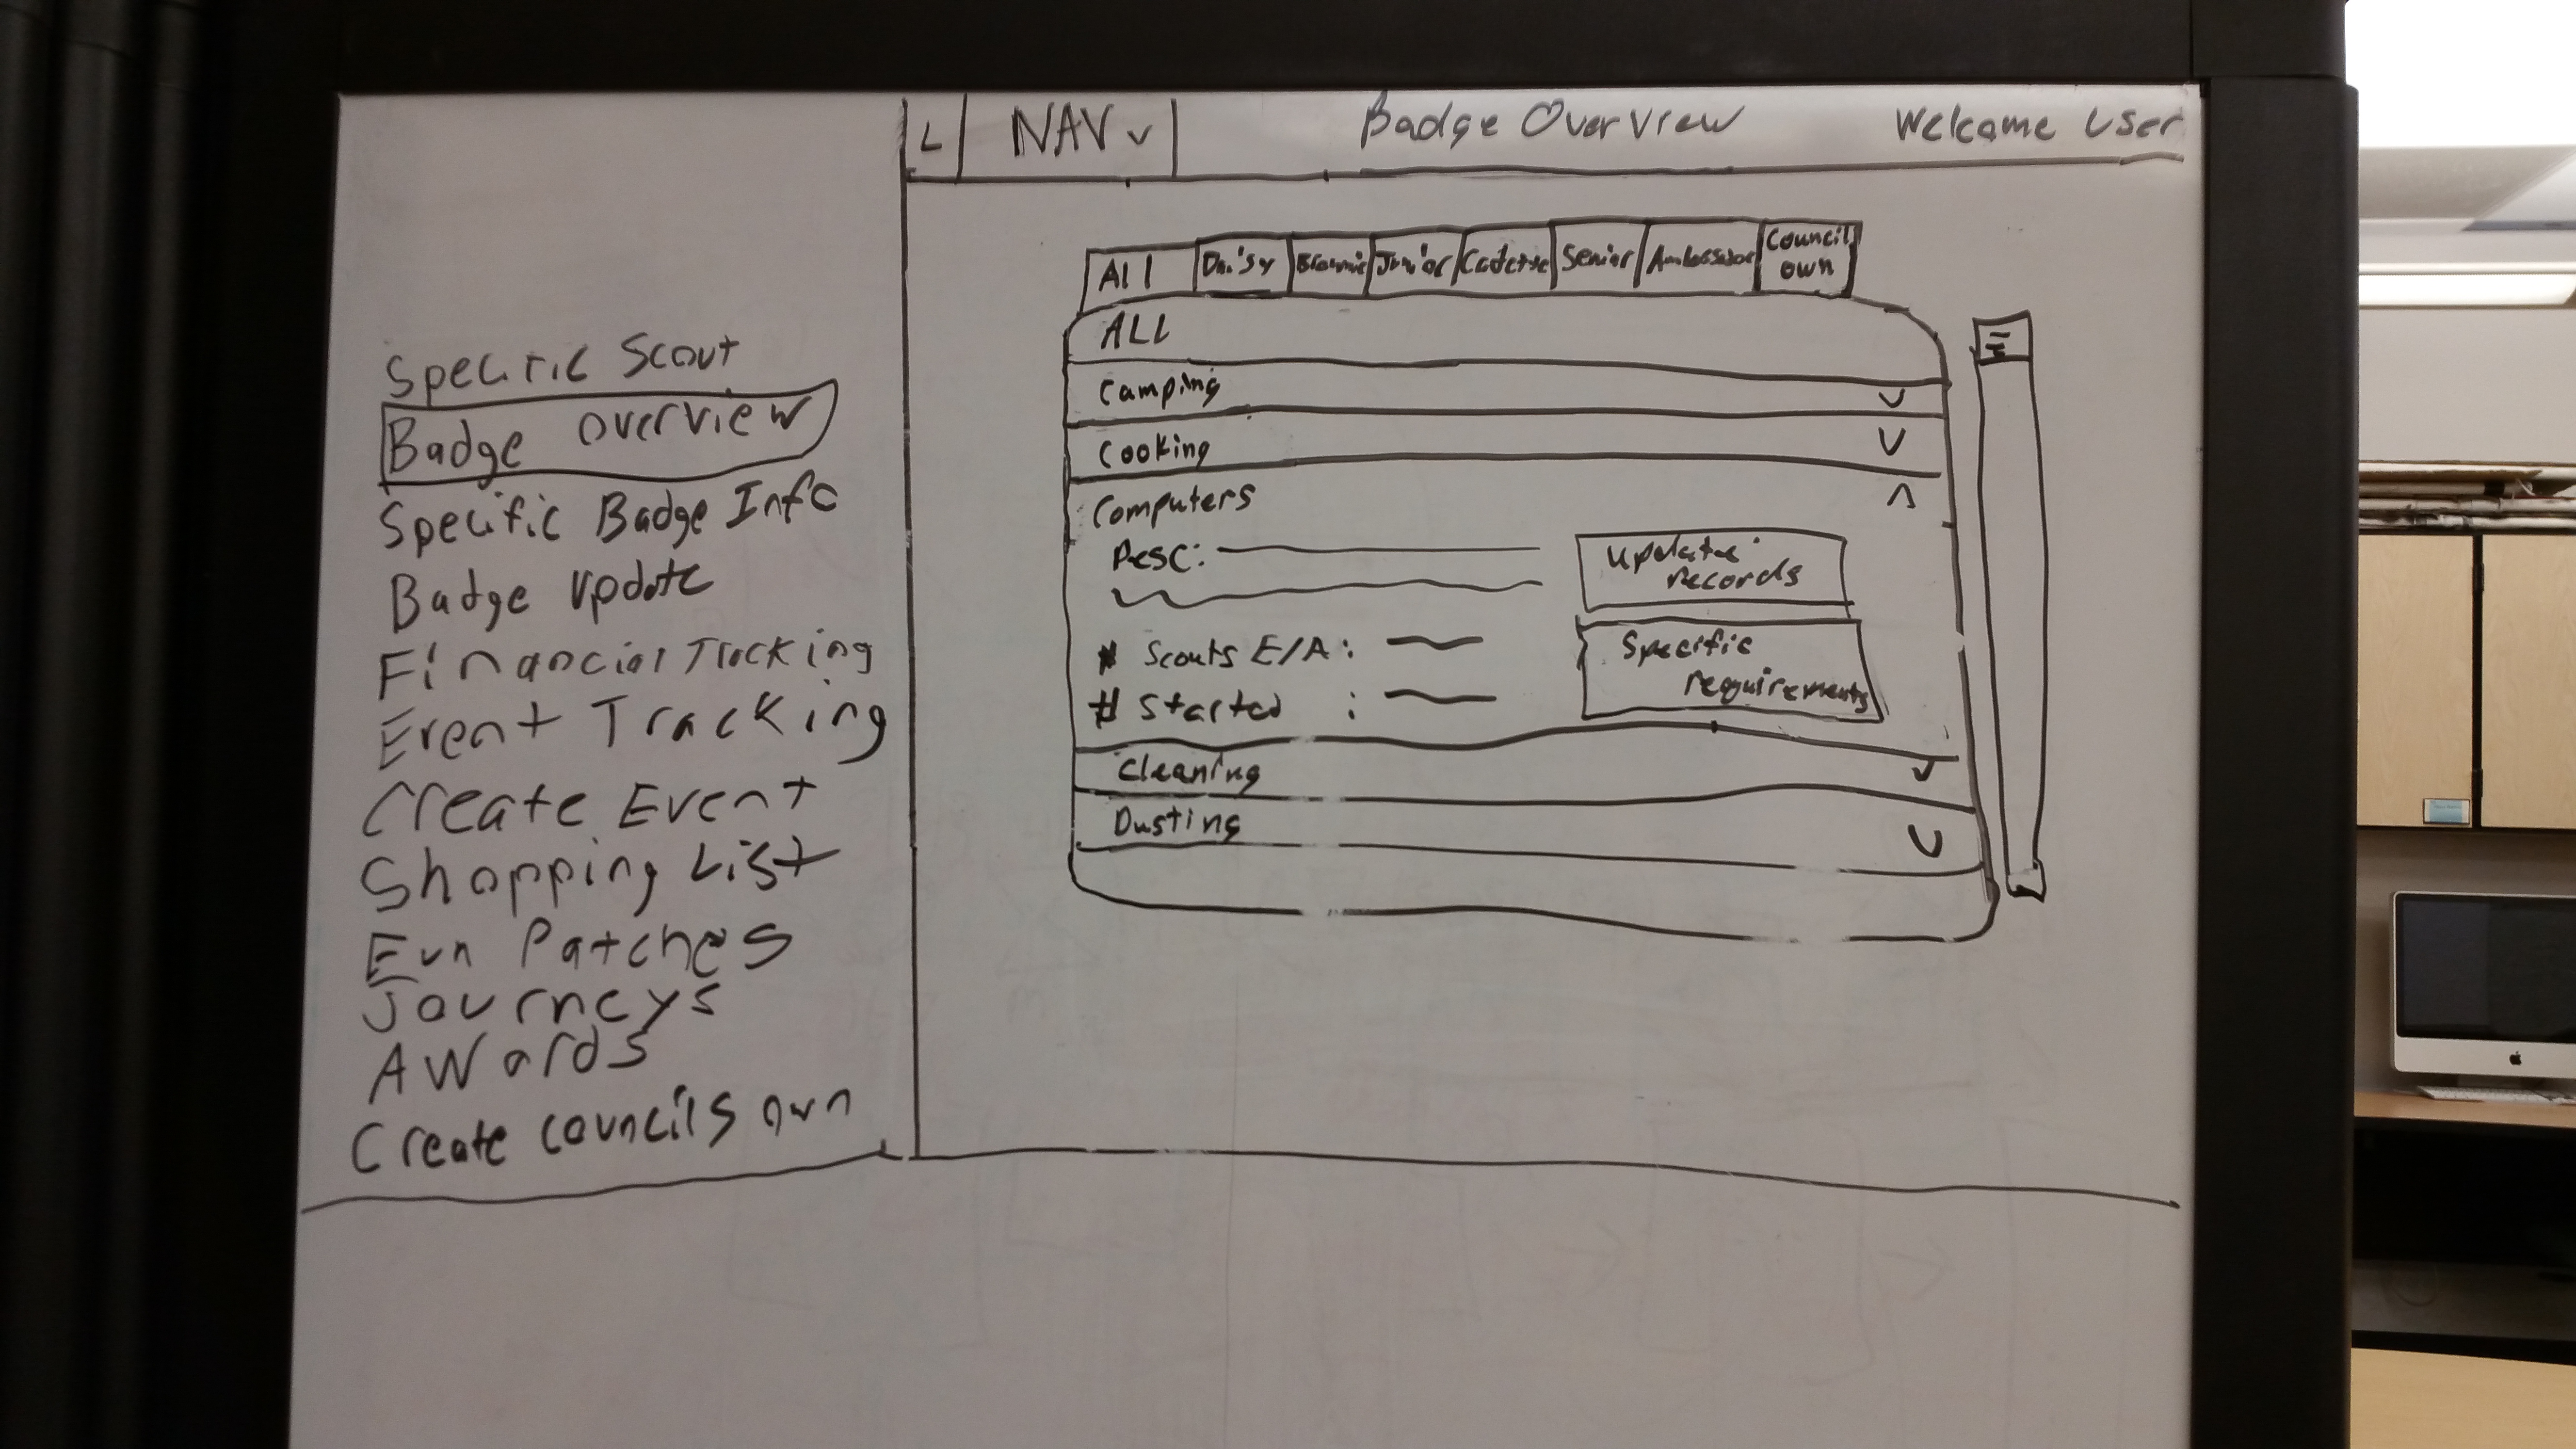 L NAV Badge Overview Welcome User
Specific Scout
Badge overview
Specific Badge Info
Badge update
Financial Tracking
Event Tracking
Create Event
Shopping List
Fun Patches
Journeys
Awards
Create councils own
All Daisy Brownie Junior Cadette Senior Ambassador Council
own
ALL
Camping
Cooking
Computers
Desc:
update
records
# Scouts E/A:
# Started :
Specific
requirements
Cleaning
Dusting